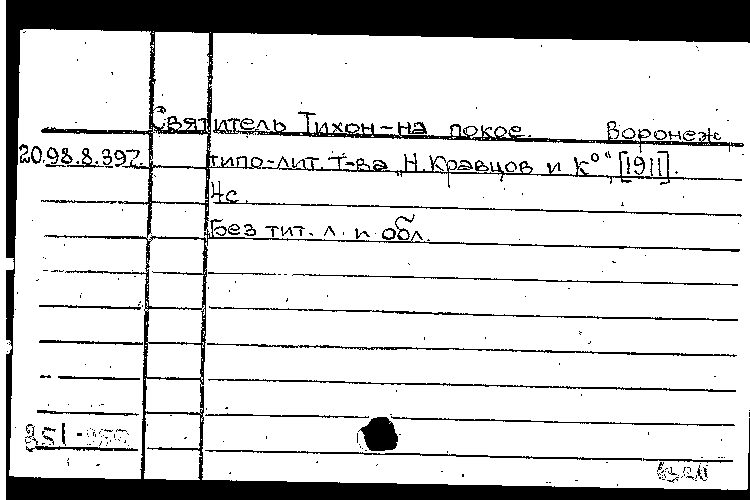 Святитель Тихон-на покое. Воронеж
20.98.8.397. типо-лит. т-ва „Н. Кравцов и К°“, [1911].
4с.
Без тит. л. и обл.
251-